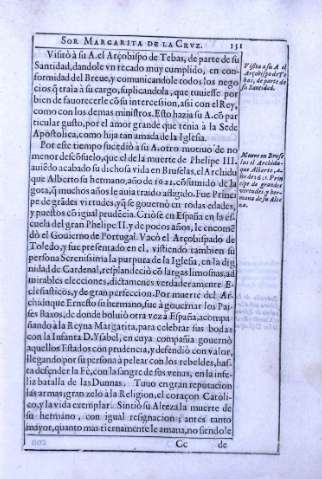 SOR MARGARITA DE LA CRVZ. 151
Visitò à su A. el Arçobispo de Tebas, de parte de su
Santidad, dandole vn recado muy cumplido, en con-
formidad del Breue, y comunicandole todos los nego
cios q̃ traìa à su cargo, suplicandola, que tuuiesse por
bien de fauorecerle cõ su intercession, assi con el Rey,
como con los demas ministros. Esto hazia su A. cõ par
ticular gusto, por el amor grande que tenia à la Sede
Apostolica, como hija tan amada de la Iglesia.
Por este tiempo sucediò a su A. otro motiuo de no
menor descõsuelo, que el de la muerte de Phelipe III.
auiẽdo acabado su dichosa vida en Bruselas, el Archidu
que Alberto su hermano, año de 1621. cõsumido de la
gota, q̃ muchos años le auia traido afligido. Fue Princi
pe de grãdes virtudes, y q̃ se gouernò en todas edades,
y puestos cõ igual prudẽcia. Criòse en España en la es
cuela del gran Phelipe II. y de pocos años, le encomẽ
dò el Gouierno de Portugal. Vacò el Arçobispado de
Toledo, y fue presentado en el, vistiendo tambien su
persona Serenissima la purpura de la Iglesia, en la dig
nidad de Cardenal, resplandeciò cõ largas limosnas, ad
mirables elecciones, dictamenes verdaderamente E-
clesiasticos, y de gran perfeccion. Por muerte del Ar-
chiduque Ernesto su hermano, fue à gouernar los Paî
ses Baxos, de donde boluiò otra vez à España, acompa-
ñando à la Reyna Margarita, para celebrar sus bodas
con la Infanta D. Ysabel, en cuya compañia gouernò
aquellos Estados con prudencia, y defendiò con valor,
llegando por su persona à pelear con los rebeldes, has-
ta defender la Fè, con la sangre de sus venas, en la infe-
liz batalla de las Dunnas. Tuuo en gran reputacion
las armas; gran zelo à la Religion, el coraçon Catoli-
co, y la vida exemplar. Sintiò su Alteza la muerte de
su hermano, con igual resignacion; antes tanto
mayor, quanto mas tiernamente le amaua, no siendole
Cc de
Visita a su A. el
Arçobispo de Te-
bas, de parte de
su Santidad.
Muere en Bruse
las el Archidu-
que Alberto, A-
ño de 1621. Prin
cipe de grandes
virtudes, y her-
mano de su Alte
za.